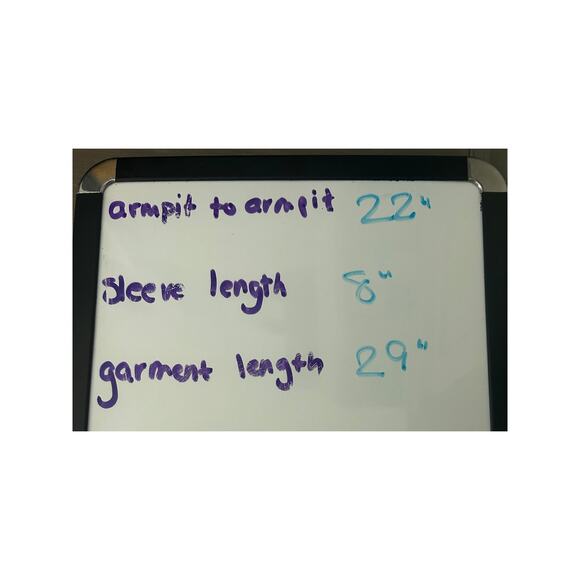 armpit to armpit 22"
Sleeve length 8"
garment length 29"